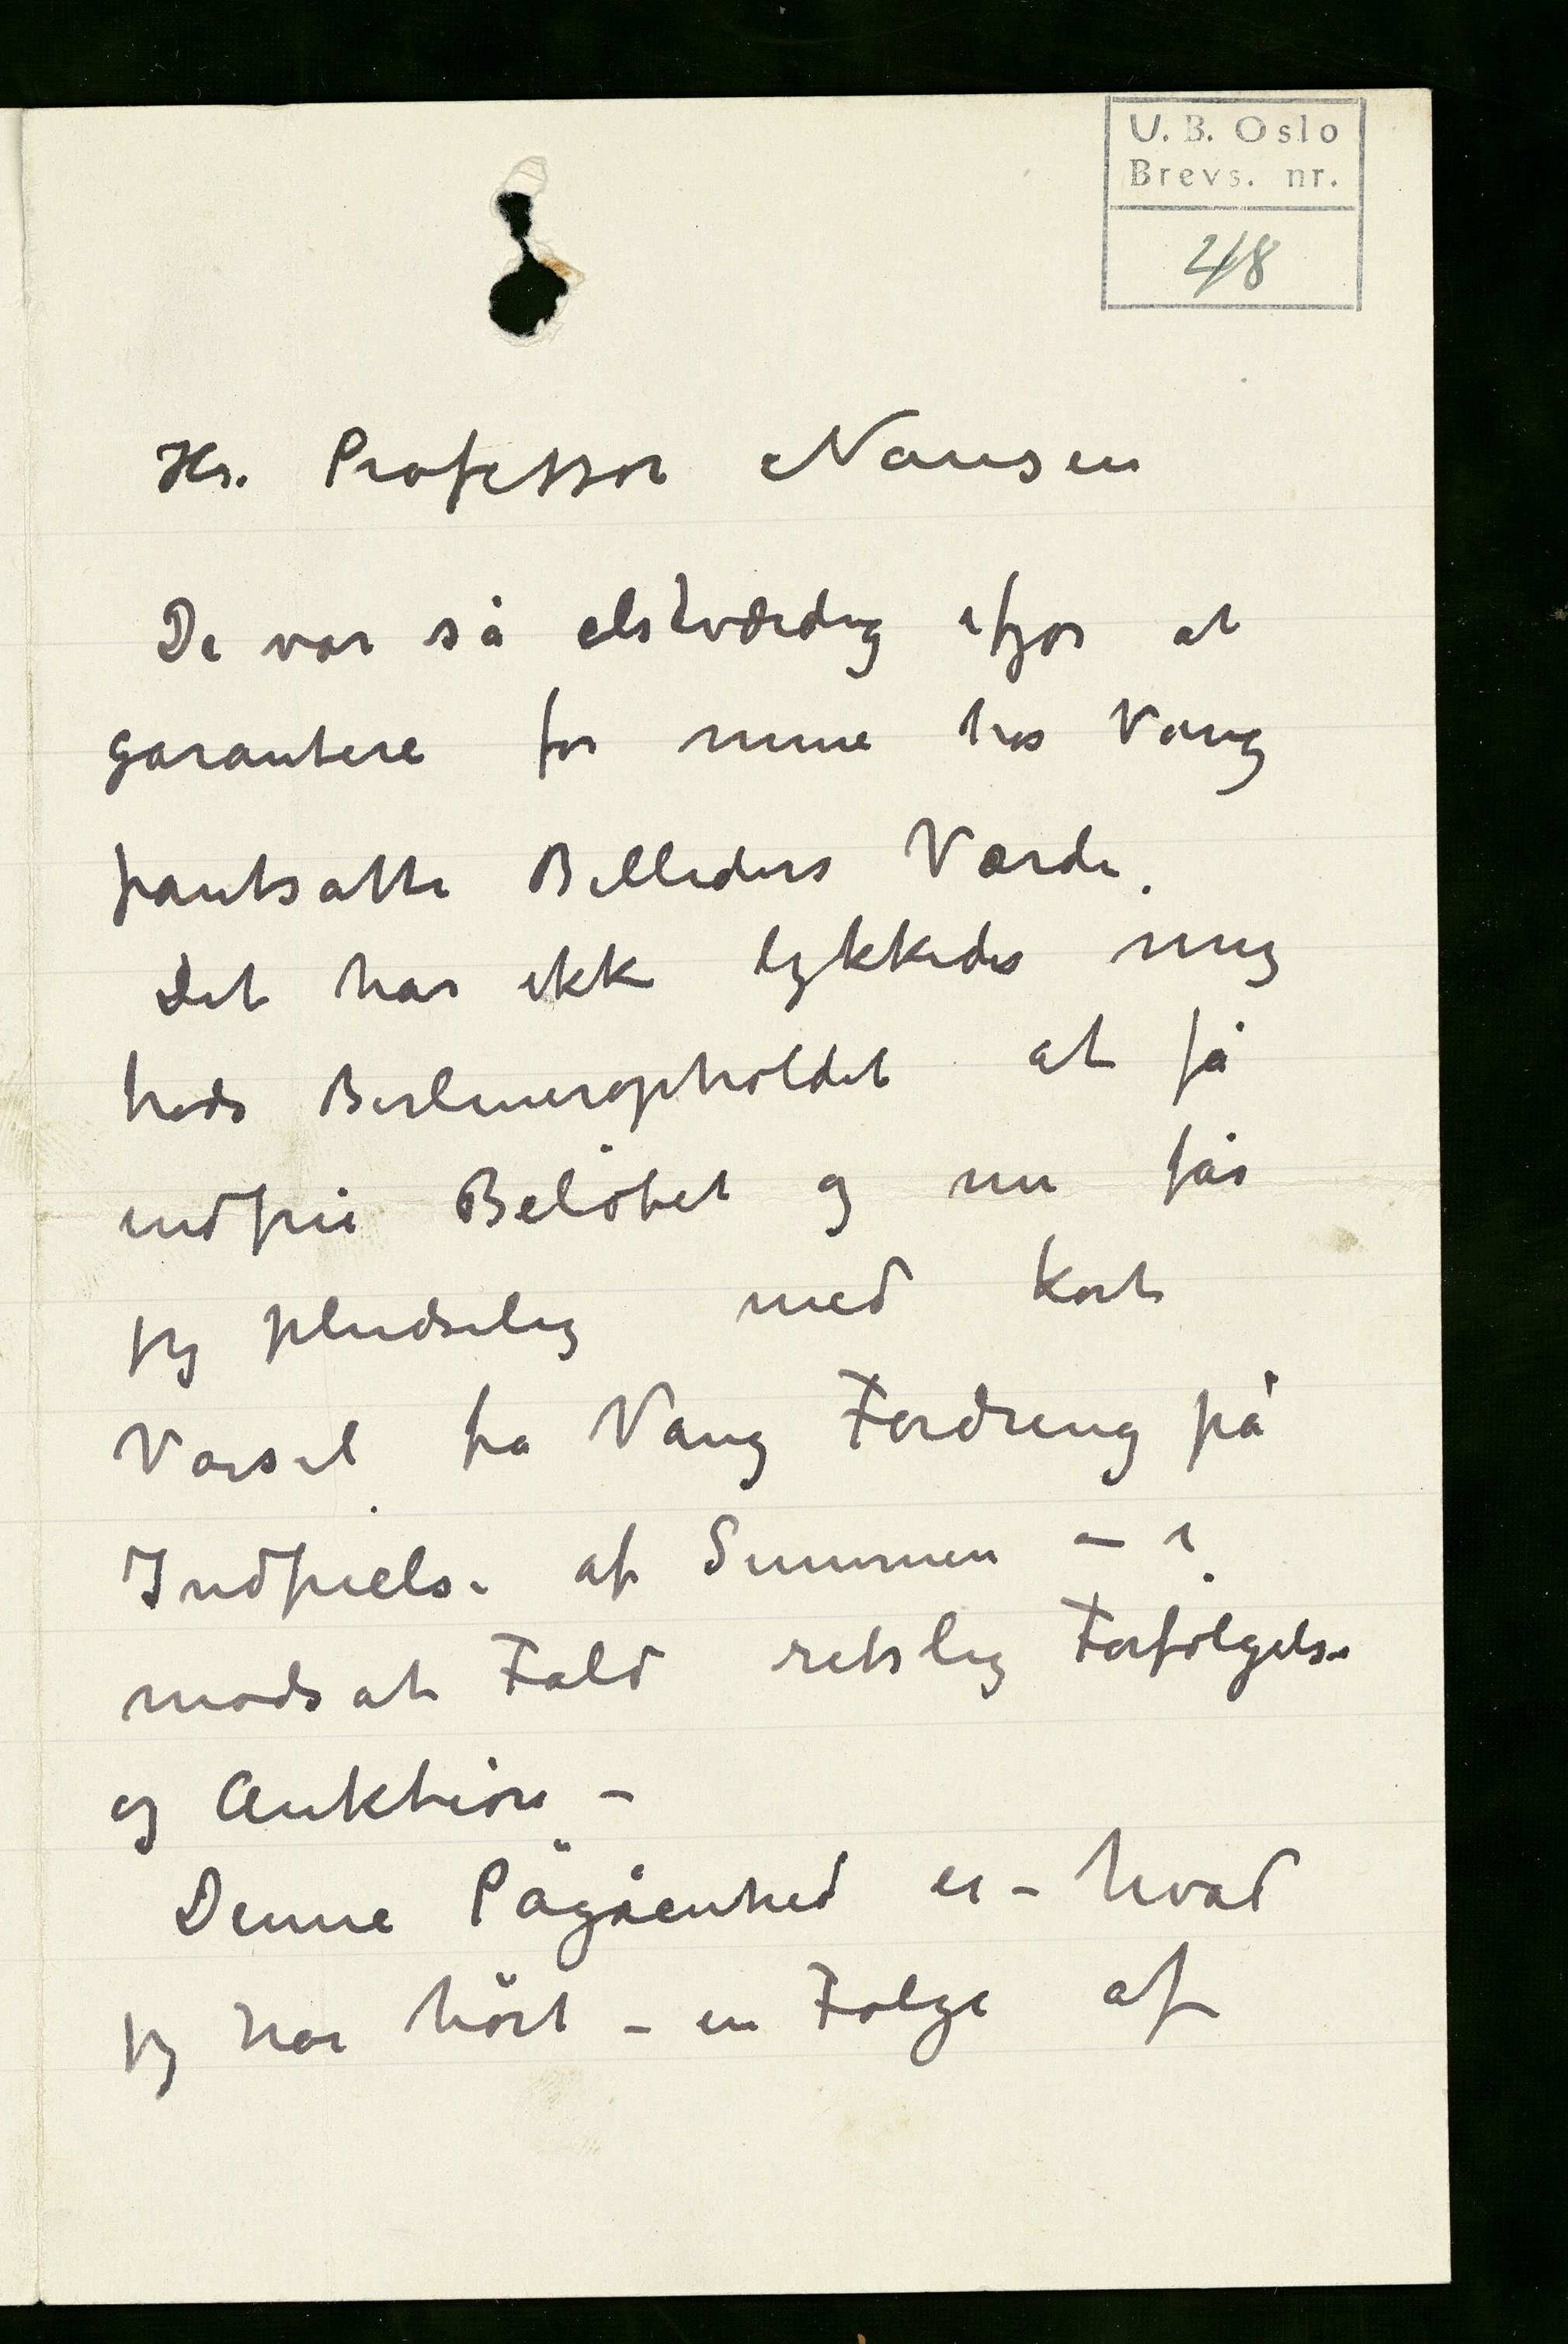 U. B. Oslo
Brevs. nr.
48
Hr. Professor Nansen
De var så elskværdig ifjor at
garantere for mine hos Vang
pantsatte Billeders Værdi.
Det har ikke lykkedes mig
trods Berlineropholdet at få
indfrie Beløbet og nu får
jeg pludselig med kort
Varsel fra Vang Fordring på
Indfrielse af Summen – i
modsat Fald retslig Forfølgelse
og Auktion –
Denne Pågåenhed er – hvad
jeg har hört – en Følge af